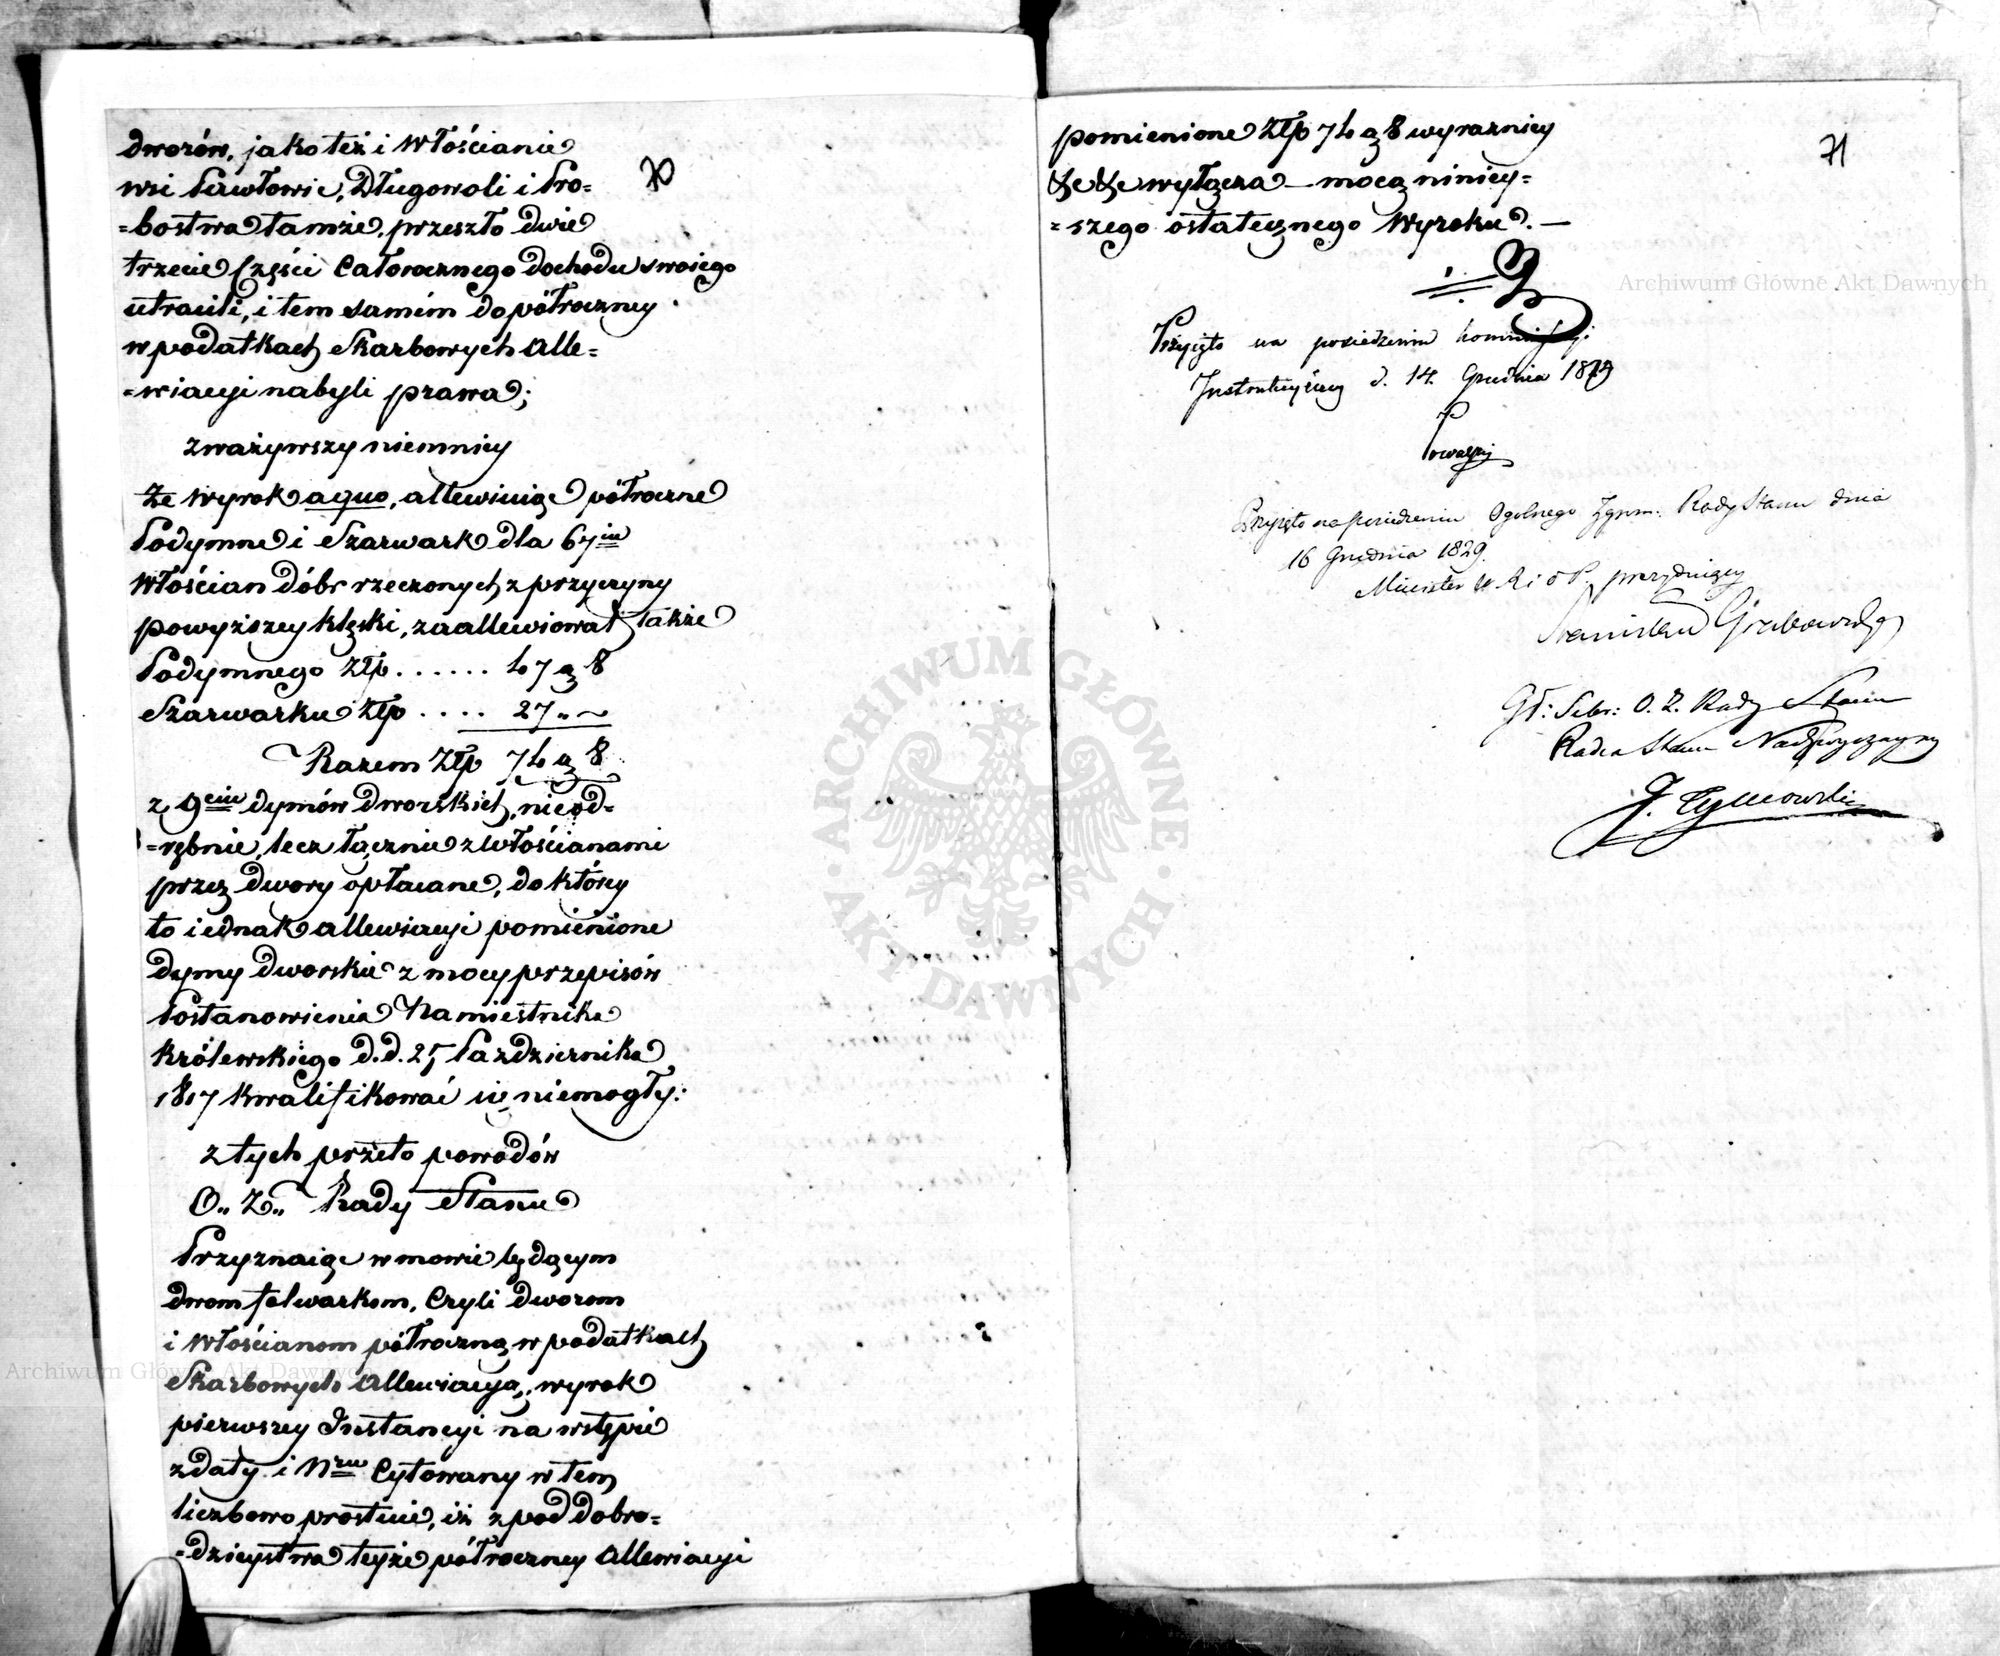 70
dworów, jako też i Włościanie
wsi Pawłowic, Długowoli i Pro=
=bostwa tamże, przeszło dwie
trzecie Części Całorocznego dochodu swoiego
utracili, i tem samém do półroczney
w podatkach Skarbowych Alle=
=wiacyi nabyli prawa;
zważywszy niemniey
Że Wyrok a quo, allewiuiąc półroczne
Podymne i Szarwark dla 67iu
Włościan dóbr rzeczonych z przyczyny
powyższey klęski, zaallewiował także
Podymnego Złp ...... 47 g 8
Szarwarku Złp .... 27 „ ~
Razem Złp 74 g 8
z 9ciu dymów dworskich, nieod=
=rębnie, lecz łącznie z Włościanami
przez dwory opłacane, do którey
to iednak allewiacyi pomienione
dymy dworskie z mocy przepisów
Postanowienia Namiestnika
Królewskiego d.d. 25 Października
1817 kwalifikować się niemogły:
z tych przeto powodów
O. Z. Rady Stanu
Przyznaiąc w mowie będącym
dwom folwarkom, Czyli dworom
i Włościanom półroczną w podatkach
Skarbowych Allewiacyą, wyrok
pierwszey Instancyi na wstępie
z daty i Nru Cytowany w tem
liczbowo prostuie, iż z pod dobro=
=dzieystwa teyże półroczney Allewiacyi
71
pomienione Złp 74 g 8 wyrazniey
wyłącza — mocą niniey=
=szego ostatecznego Wyroku. —
Przyięto na posiedzeniu Kommissyi
Instrukcyiney d. 14. Grudnia 1829
Przyięto na posiedzeniu Ogolnego Zgrom: Rady Stanu dnia
16 Grudnia 1829.
Minister W R i O P. prezyduiący
Stanisław Grabowski
Sekr: O. Z. Rady Stanu
Radca Stanu Nadzwyczayny
J. Tymowski
ARCHIWUM GŁÓWNE
AKT DAWNYCH
Archiwum Główne Akt Dawnych
Archiwum Główne Akt Dawnych